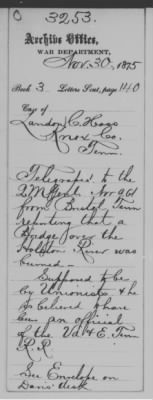 3253.
Archive Office,
WAR DEPARTMENT,
Nov. 30, 1875
Book 3 Letters Sent, page 140
Case of
Landon C. Haes
Knox Co.
Tenn.
Telegraphed to the
from Bristol, Tenn
reporting that a
Bridge over the
Holston River was
burned -
Supposed to be
by Unionists & he
is believed to have
been an official
of the Va & E. Tenn
R. R.
See Envelope on
Davis' desk